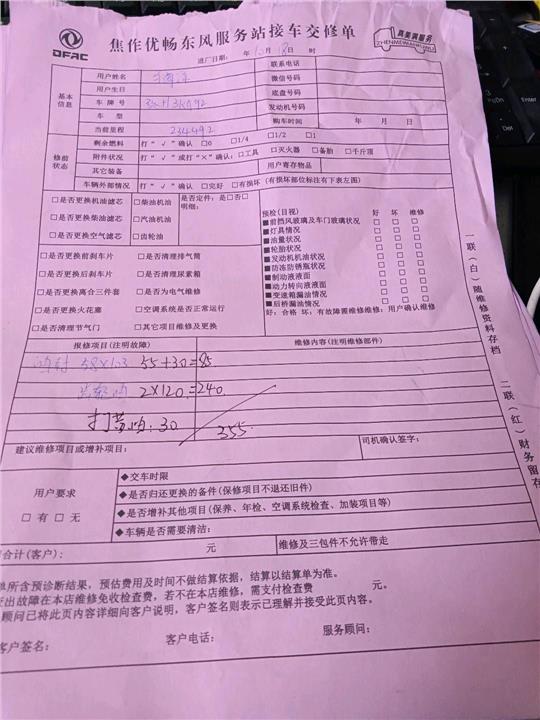 DFAC
焦作优畅东风服务站接车交修单
真美满服务
ZHENMEIMANFUWU
进厂日期: 年 10月 18日 时
基本信息
用户姓名
联系电话
用户生日
微信号码
车 牌 号
底盘号码
车 型
发动机号码
当前里程 234492
购车时间 年 月 日
修前状态
剩余燃料 打“√”确认 □0 □1/4 □1/2 □1
附件状况 打“√”或打“×”确认:□工具 □灭火器 □备胎 □千斤顶
其它装备 用户寄存物品
车辆外部情况 打“√”确认 □完好 □有损坏(有损坏部位标注有下表左图)
□是否更换机油滤芯
□是否更换柴油滤芯
□是否更换空气滤芯
□柴油机油
□汽油机油
□齿轮油
是否定件: 是□否□
明细:
□是否更换前刹车片 □是否清理排气筒
□是否更换后刹车片 □是否清理尿素箱
□是否更换离合三件套 □是否为电气维修
□是否更换火花塞 □空调系统是否正常运行
□是否清理节气门 □其它项目维修及更换
预检(目视) 好 坏 维修
■前挡风玻璃及车门玻璃状况 □ □ □
■灯具情况 □ □ □
■油量状况 □ □ □
■轮胎状况 □ □ □
■发动机机油状况 □ □ □
■防冻防锈瓶状况 □ □ □
■制动液液面 □ □ □
■动力转向液液面 □ □ □
■变速箱漏油情况 □ □ □
■后桥漏油情况 □ □ □
好:合格 坏:有故障需维修维修:用户确认维修
报修项目(注明故障)
维修内容(注明维修部件)
58×103 55+30=85
2×120=240
打黄油: 30
355.
建议维修项目或增补项目:
司机确认签字:
用户要求
□ 有 □ 无
◆交车时限
◆是否归还更换的备件(保修项目不退还旧件)
◆是否增补其他项目(保养、年检、空调系统检查、加装项目等)
◆车辆是否需要清洁:
合计(客户): 元
维修及三包件不允许带走
单所含预诊断结果,预估费用及时间不做结算依据,结算以结算单为准。
出故障在本店维修免收检查费,若不在本店维修,需支付检查费 元。
顾问已将此页内容详细向客户说明,客户签名则表示已理解并接受此页内容。
客户签名: 客户电话: 服务顾问:
一联(白)随维修资料存档 二联(红)财务留存